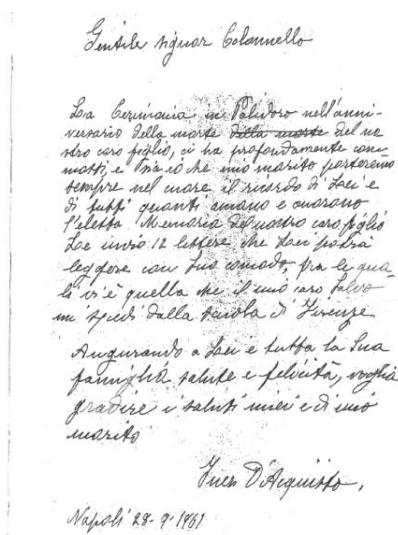 Gentile signor Colannello
La Cerimonia in Palidoro nell'anni-
versario della morte della morte del no
stro caro figlio, ci ha profondamente com
mossi, e sia io che mio marito porteremo
sempre nel cuore il ricordo di Lei e
di tutti quanti amano e onorano
l'eletta Memoria del nostro caro figlio
Le invio 12 lettere che Lei potrà
leggere con Suo comodo, fra le qua-
li vi è quella che il mio caro Salvo
mi spedì dalla scuola di Firenze
Augurando a Lei e tutta la Sua
famiglia salute e felicità, voglia
gradire i saluti miei e di mio
marito
Ines D'Acquisto,
Napoli 28-9-1961